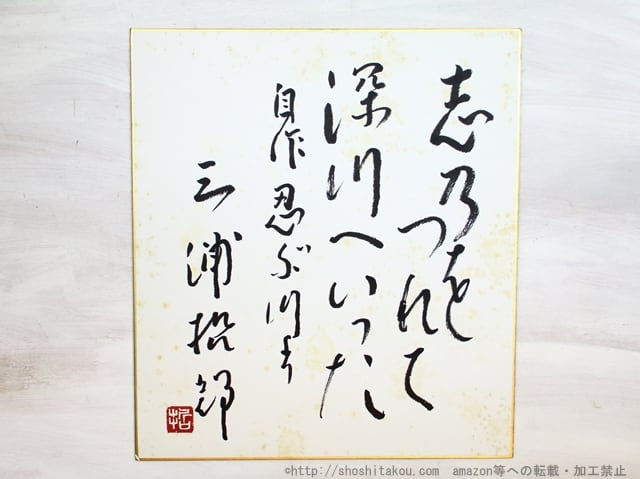 志乃を
つれて
深川へいった
自作 忍ぶ川より
三浦哲郎
哲
©http://shoshitakou.com amazon等への転載・加工禁止